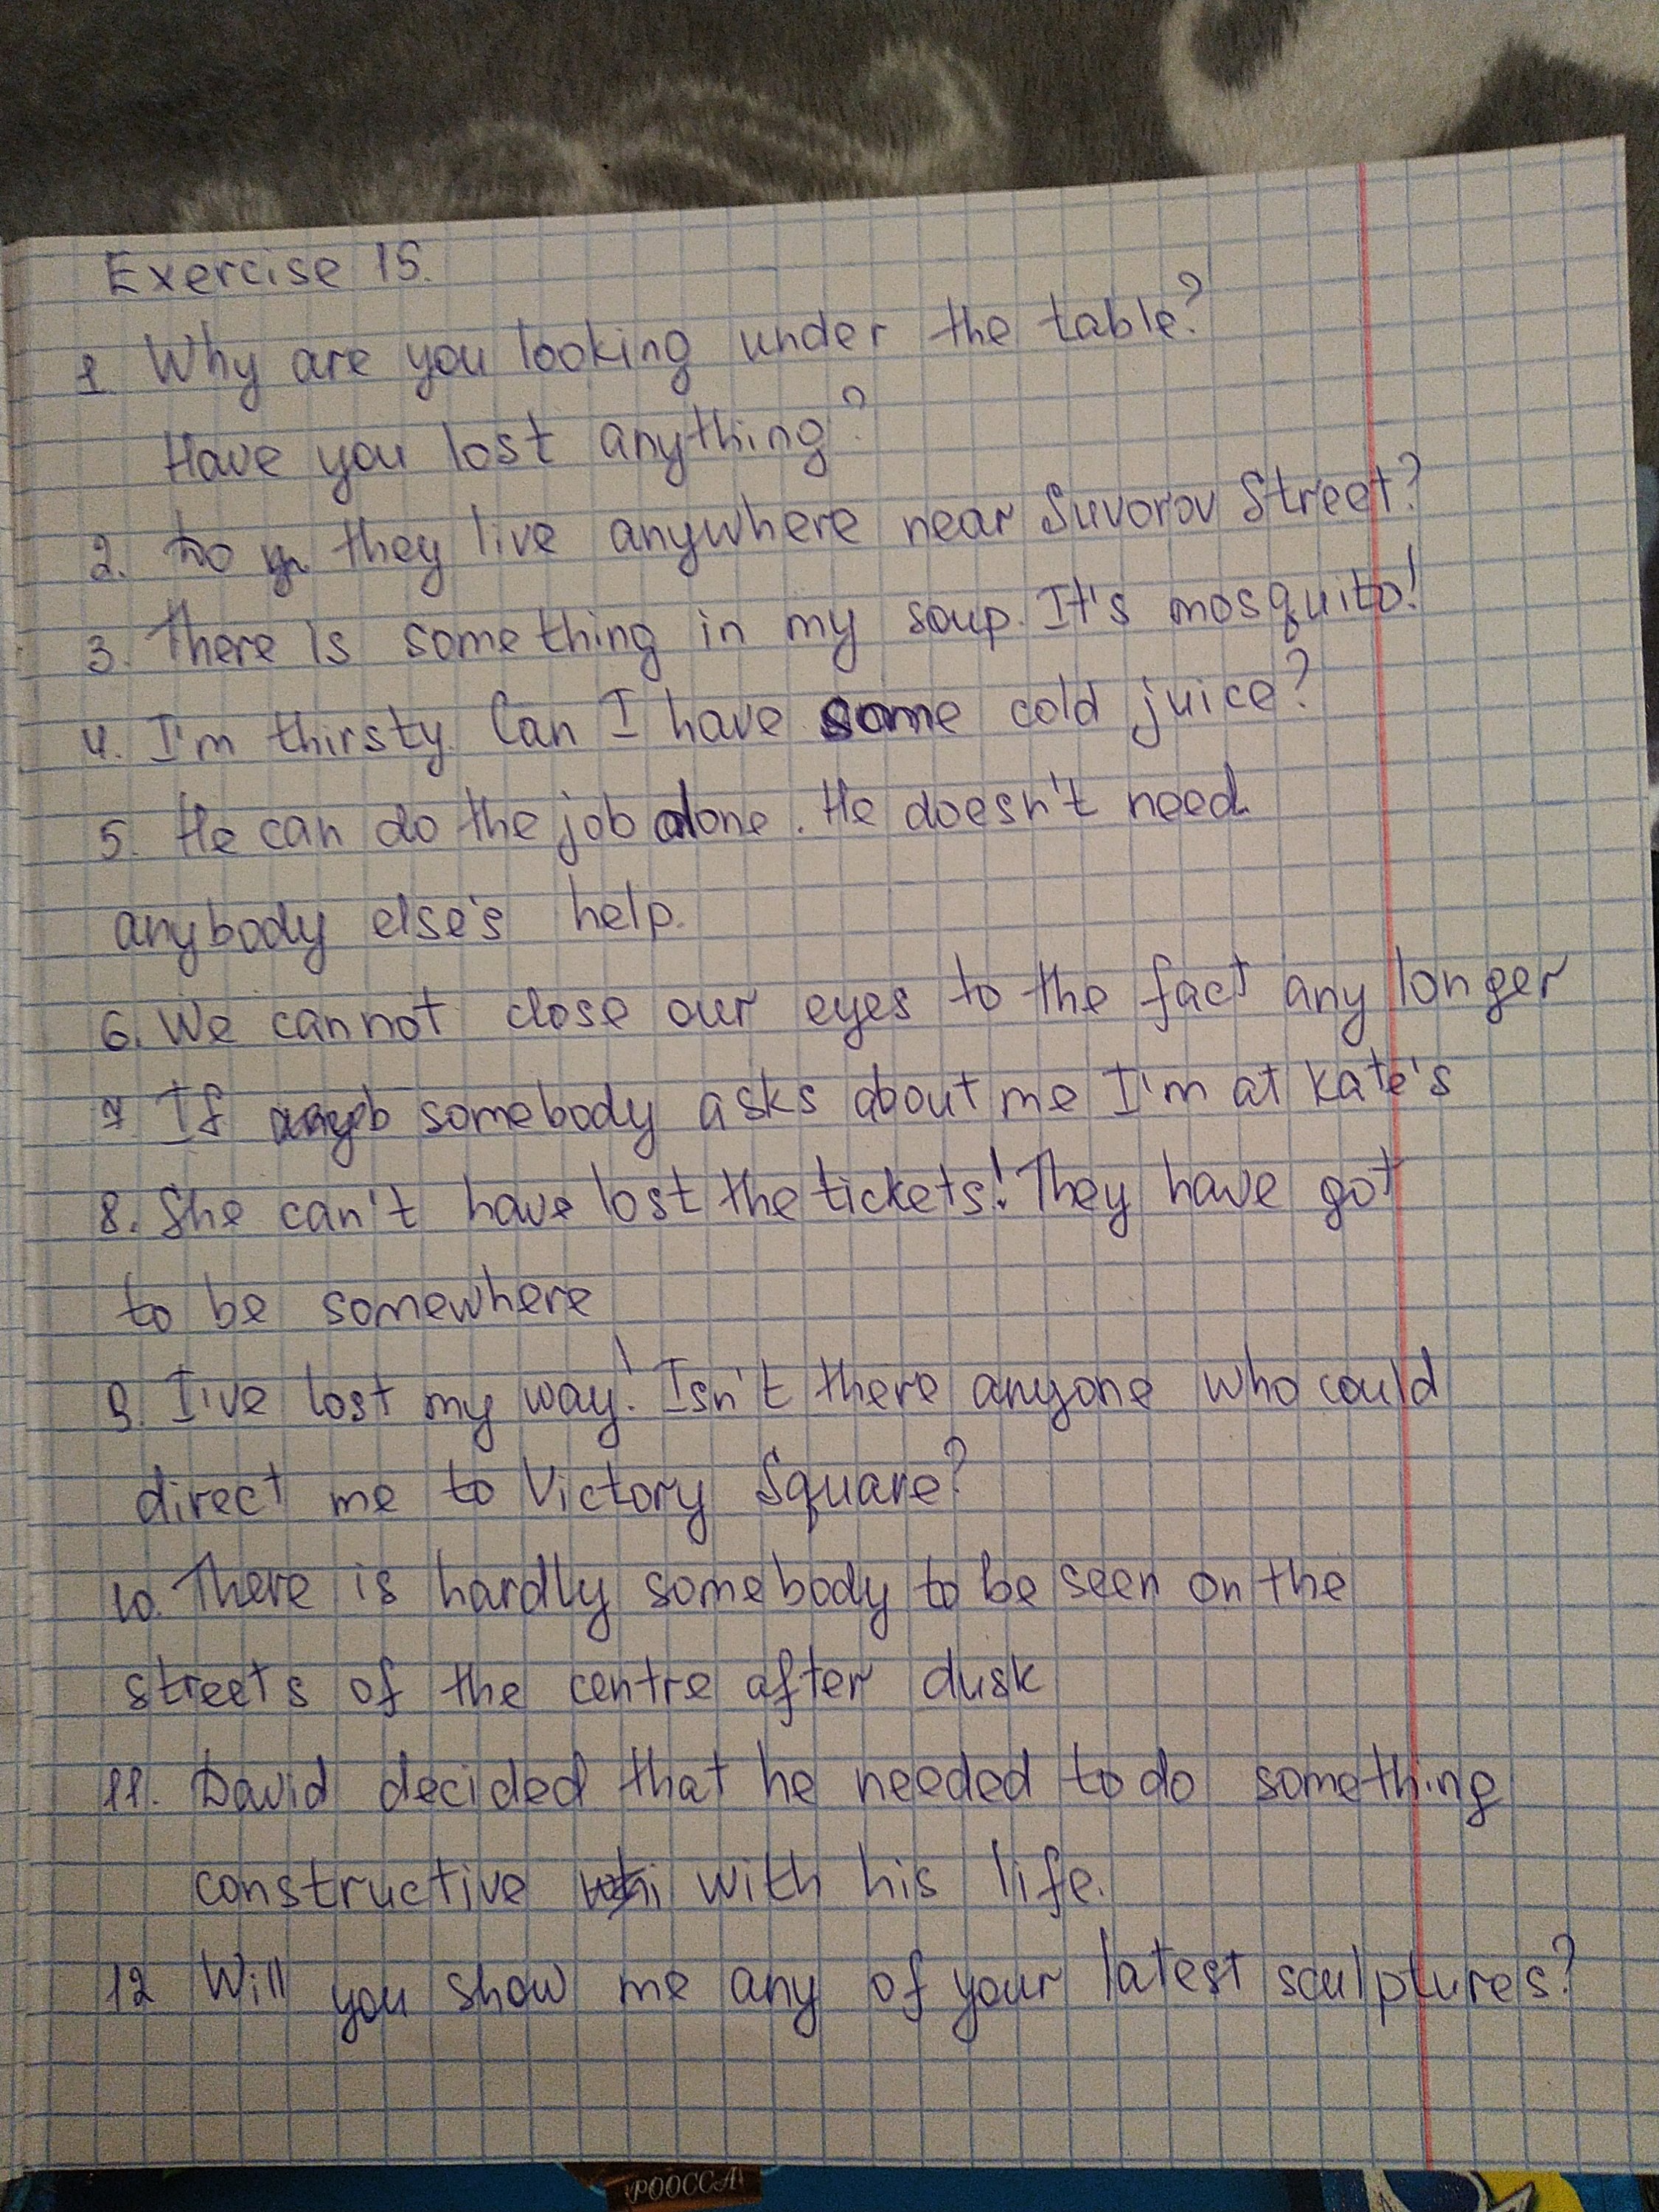 Exercise 15.
1 Why are you looking under the table?
Have you lost anything?
2. Do they live anywhere near Suvorov Street?
3. There is something in my soup. It's mosquito!
4. I'm thirsty. Can I have some cold juice?
5. He can do the job alone. He doesn't need
anybody else's help.
6. We cannot close our eyes to the fact any longer
7. If somebody asks about me I'm at Kate's
8. She can't have lost the tickets! They have got
to be somewhere
9. I've lost my way! Isn't there anyone who could
direct me to Victory Square?
10. There is hardly somebody to be seen on the
streets of the centre after dusk
11. David decided that he needed to do something
constructive with his life.
12 Will you show me any of your latest sculptures?